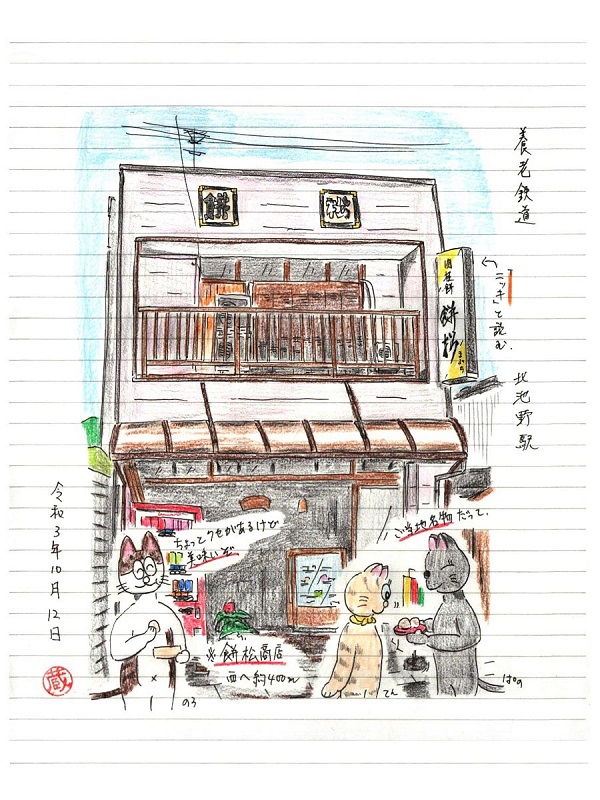 養老鉄道
北池野駅
「ニッキ」と読む.
餅
松
肉桂餅
餅松
ちょっとクセがあるけど
美味いぞ
ご当地名物だって。
※餅松商店
西へ約400m
のろ
てん
ぱの
令和3年10月12日
蔵